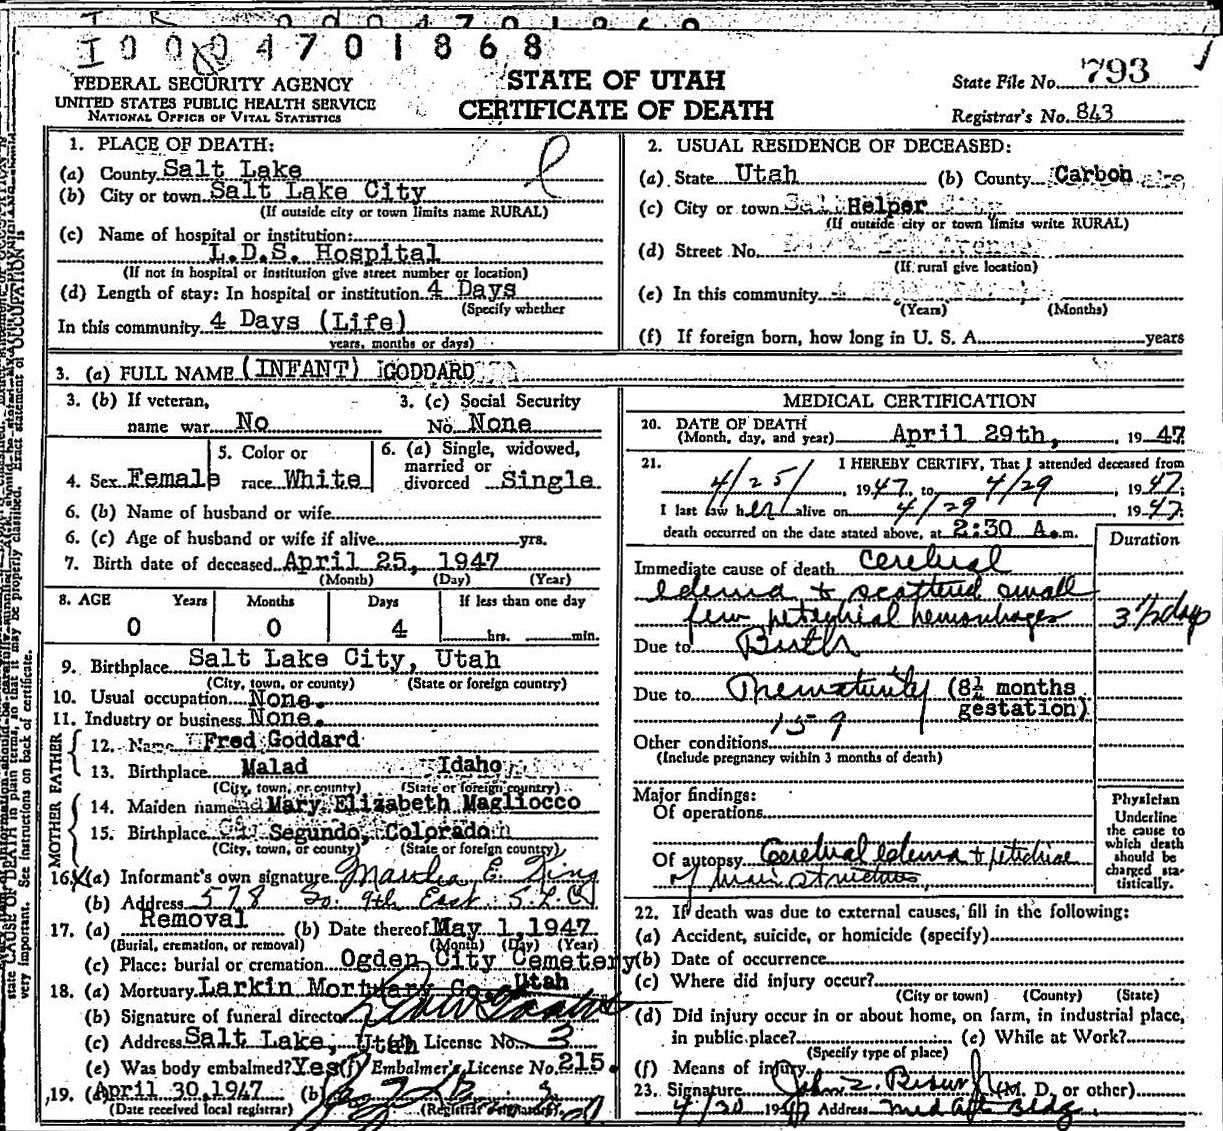 I 0 0 0 4 7 0 1 8 6 8
FEDERAL SECURITY AGENCY
UNITED STATES PUBLIC HEALTH SERVICE
NATIONAL OFFICE OF VITAL STATISTICS
STATE OF UTAH
CERTIFICATE OF DEATH
State File No. 793
Registrar's No. 843
1. PLACE OF DEATH:
(a) County Salt Lake
(b) City or town Salt Lake City
(If outside city or town limits name RURAL)
(c) Name of hospital or institution:
L.D.S. Hospital
(If not in hospital or institution give street number or location)
(d) Length of stay: In hospital or institution 4 Days
(Specify whether
In this community 4 Days (Life)
years, months or days)
2. USUAL RESIDENCE OF DECEASED:
(a) State Utah (b) County Carbon
(c) City or town Helper
(If outside city or town limits write RURAL)
(d) Street No.
(If rural give location)
(e) In this community
(Years) (Months)
(f) If foreign born, how long in U. S. A. years
3. (a) FULL NAME (INFANT) GODDARD
3. (b) If veteran,
name war No
3. (c) Social Security
No. None
4. Sex Female
5. Color or
race White
6. (a) Single, widowed,
married or
divorced Single
6. (b) Name of husband or wife
6. (c) Age of husband or wife if alive yrs.
7. Birth date of deceased April 25, 1947
(Month) (Day) (Year)
8. AGE Years Months Days If less than one day
0 0 4 hrs. min.
9. Birthplace Salt Lake City, Utah
(City, town, or county) (State or foreign country)
10. Usual occupation None.
11. Industry or business None.
FATHER
12. Name Fred Goddard
13. Birthplace Malad Idaho
(City, town, or county) (State or foreign country)
MOTHER
14. Maiden name Mary Elizabeth Magliocco
15. Birthplace Segundo, Colorado
(City, town, or county) (State or foreign country)
16. (a) Informant's own signature E. King
(b) Address 578 So. 9th East S.L.C.
17. (a) Removal (b) Date thereof May 1, 1947
(Burial, cremation, or removal) (Month) (Day) (Year)
(c) Place: burial or cremation Ogden City Cemetery
Utah
18. (a) Mortuary Larkin Mortuary Co.
(b) Signature of funeral director
(c) Address Salt Lake, Utah (d) License No. 3
(e) Was body embalmed? Yes (f) Embalmer's License No. 215.
19. (a) April 30, 1947 (b)
(Date received local registrar) (Registrar's signature)
MEDICAL CERTIFICATION
20. DATE OF DEATH
(Month, day, and year) April 29th, 1947
21. I HEREBY CERTIFY, That I attended deceased from
4/25/, 1947, to 4/29, 1947;
I last saw her alive on 4/29, 1947;
death occurred on the date stated above, at 2:30 A.m.
Duration
Immediate cause of death Cerebral
edema + scattered small
few petechial hemorrhages 3 1/2 days
Due to Birth
Due to Prematurity (8½ months
gestation)
159
Other conditions
(Include pregnancy within 3 months of death)
Major findings:
Of operations
Of autopsy Cerebral edema + petechiae
of
Physician
Underline
the cause to
which death
should be
charged sta-
tistically.
22. If death was due to external causes, fill in the following:
(a) Accident, suicide, or homicide (specify)
(b) Date of occurrence
(c) Where did injury occur?
(City or town) (County) (State)
(d) Did injury occur in or about home, on farm, in industrial place,
in public place? (e) While at Work?
(Specify type of place)
(f) Means of injury
23. Signature John Z. Brown Jr (M. D. or other)
4/30 1947 Address Med Arts Bldg.